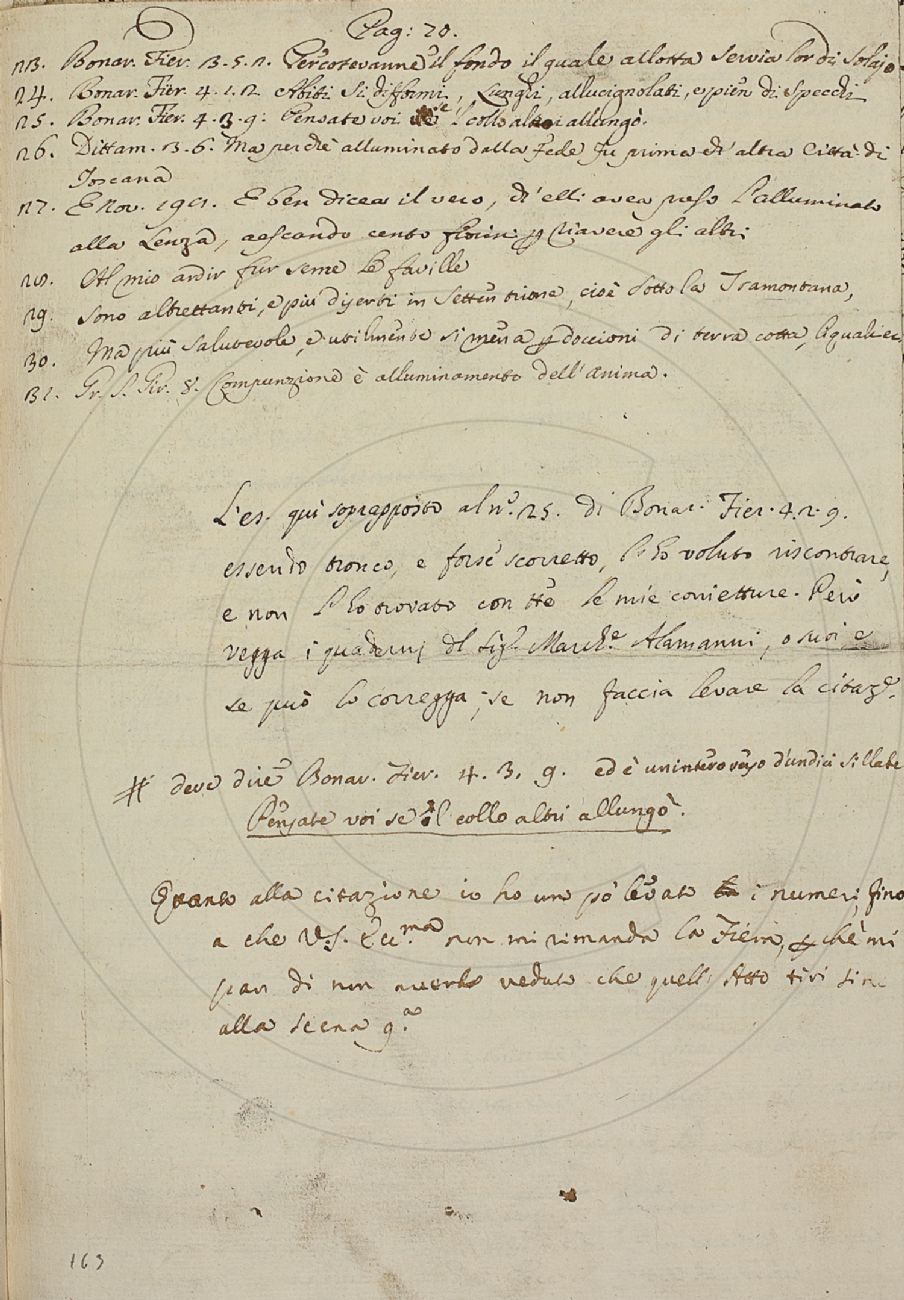 Pag: 20.
23. Bonar. Fier. 3. 5. 2. Percotevanne il fondo il quale allotta servia lor di solajo
24. Bonar. Fier. 4. 1. 12. Abiti sì difformi, Lunghi, allucignolati, e pien di specchi
25. Bonar. Fier. 4. 3. 9: Pensate voi se 'l collo altri allungò.
26. Dittam. 3. 6. Ma perchè alluminato dalla Fede Fu prima ch'altra Città di
Toscana
27. E Nov. 191. E ben dicea il vero, ch'elli avea preso l'alluminato
alla Lenza, aescando cento fiorini p riavere gli altri
28. Al mio ardir fur seme le faville
29. Sono altrettanti, e più diserti in Settentrione, cioè sotto la Tramontana,
30. Ma più salutevole, e utilmente si mena p doccioni di terra cotta, li quali ec.
31. Gr. S. Gir. 8. Compunzione è alluminamento dell'anima.
L'es. quì soprapposto al nº. 25. di Bonar. Fier. 4. 2. 9.
essendo tronco, e forse scorretto, l'ho voluto riscontrare,
e non l'ho trovato con tte le mie conietture. Però
vegga i quaderni dl Sigr. March.e Alamanni, o suoi e
se può lo corregga; se non faccia levare la citaz.e.
# deve dire Bonar. Fier. 4. 3. 9. ed è un intero verso d'undici sillabe
Pensate voi se 'l collo altri allungò.
Quanto alla citazione io ho un pò levato i numeri, fino
a che V. S. Ecc.ma non mi rimanda la Fiera, p chè mi
par di non averlo veduto che quell'Atto tiri sino
alla scena 9.a
163